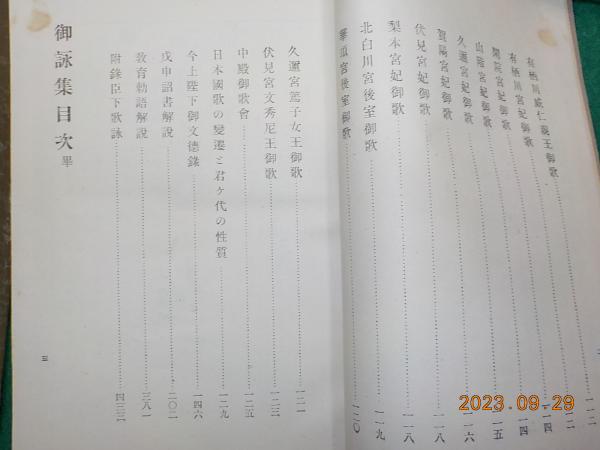 有栖川威仁親王御歌……一一二
有栖川宮妃御歌……一一四
閑院宮妃御歌……一一四
山階宮妃御歌……一一五
久邇宮妃御歌……一一六
賀陽宮妃御歌……一一八
伏見宮妃御歌……一一八
梨本宮妃御歌……一一九
北白川宮後室御歌……一二〇
華頂宮後室御歌
久邇宮篤子女王御歌……一二一
伏見宮文秀尼王御歌……一二三
中殿御歌會……一二五
日本國歌の變遷と君ヶ代の性質……一二九
今上陛下御文德錄……一四六
戊申詔書解說……二〇二
敎育勅語解說……三八一
附錄臣下歌詠……四三三
御詠集目次 畢
三
2023.09.29